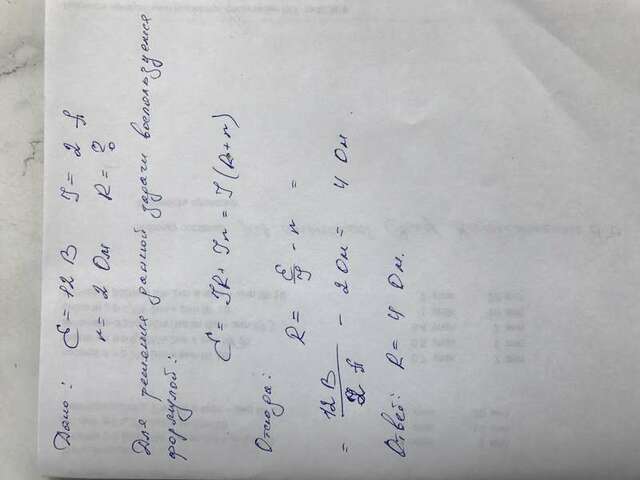 Дано: ℰ = 12 В J = 2 А
r = 2 Ом R = ?
Для решения данной задачи воспользуемся
формулой:
ℰ = JR + Jr = J (R + r)
Откуда:
R = ℰ/J - r =
= 12 В / 2 А - 2 Ом = 4 Ом
Ответ: R = 4 Ом.